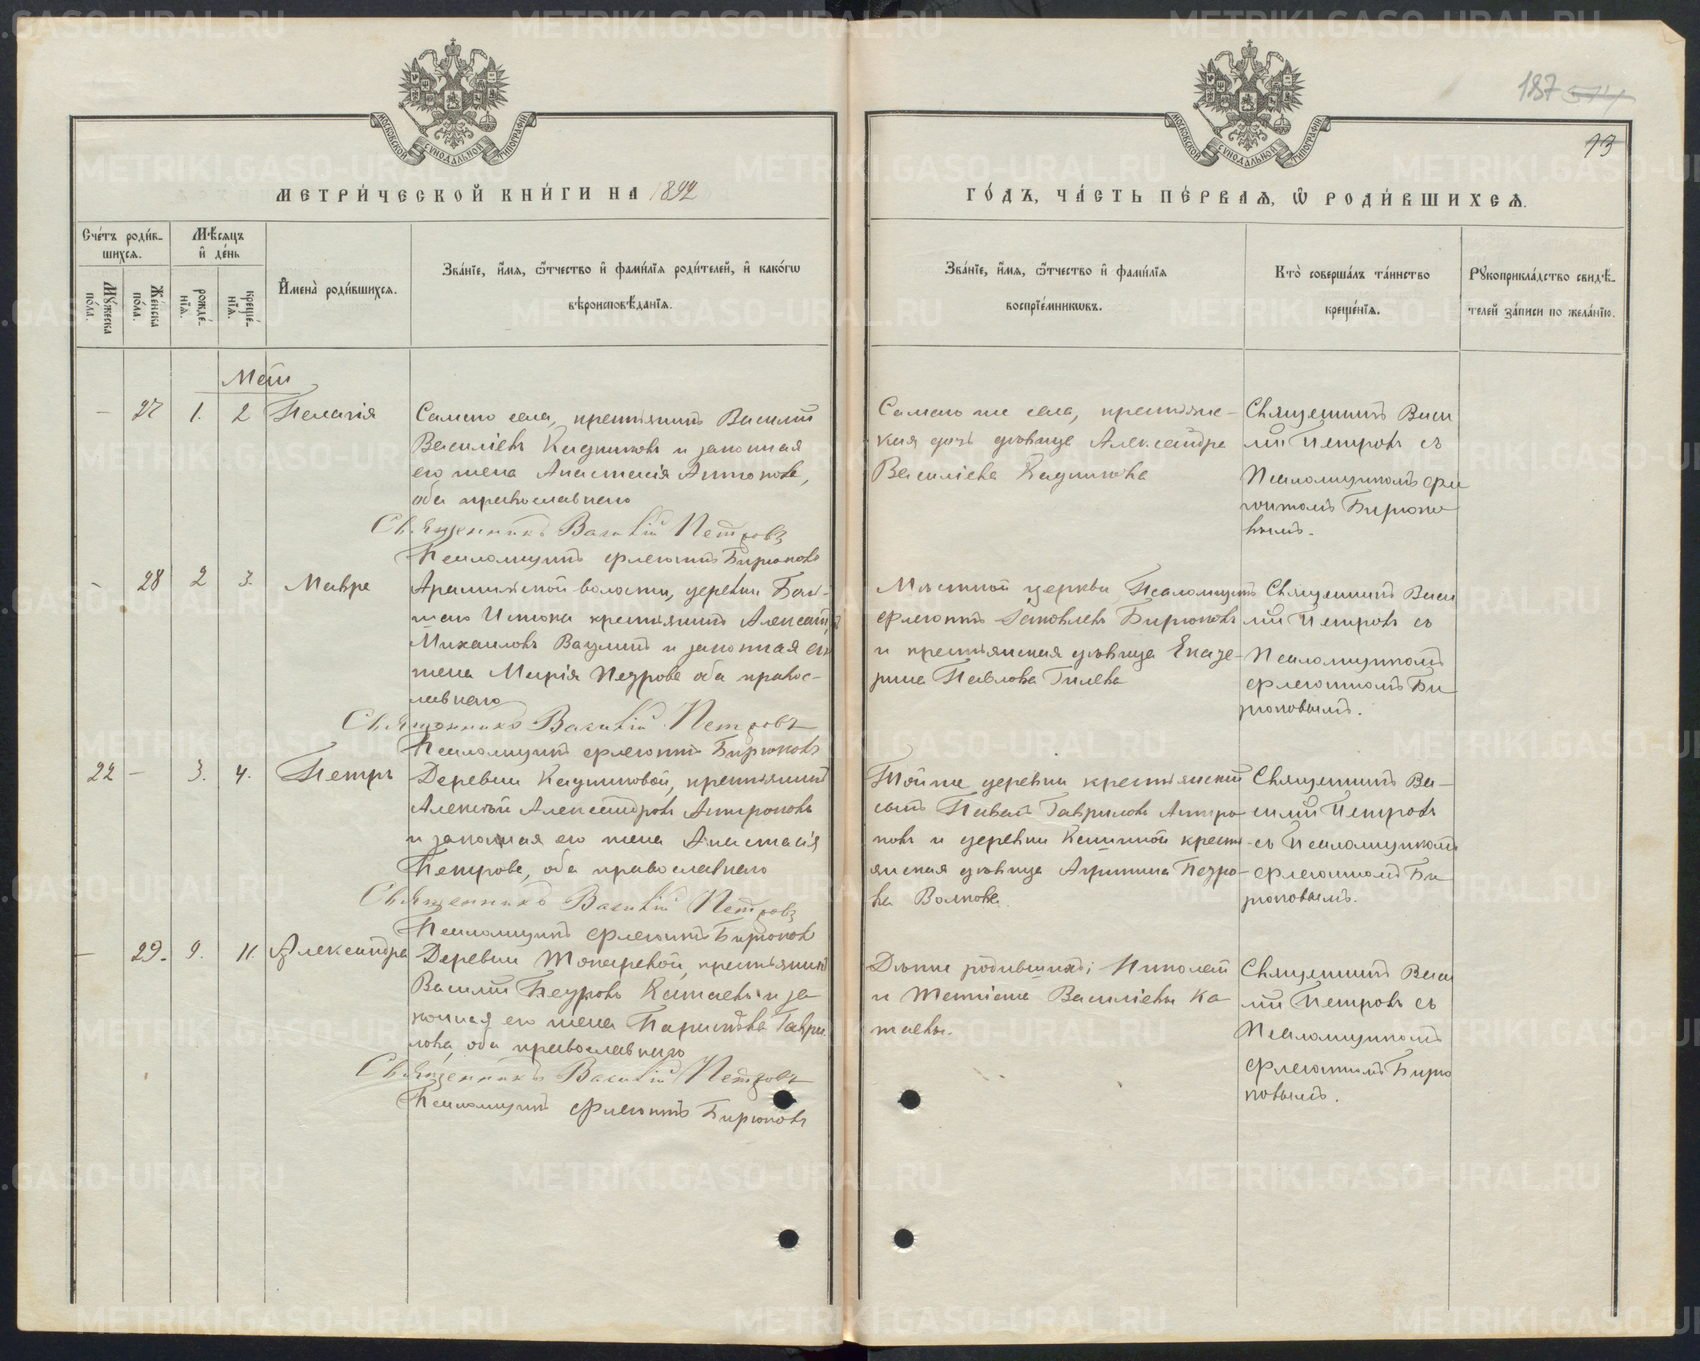 187 574
93
МЕТРИ́ЧЕСКОЙ КНИ́ГИ НА 1892
ГО́ДЪ, ЧА́СТЬ ПЕ́РВАЯ, Ѡ РОДИ́ВШИХСЯ.
Сче́тъ роди́в-
шихся.
Мѣ́сяцъ
и҆ де́нь
Му́жеска
по́ла.
Же́нска
по́ла.
рожде́-
нїя.
креще́-
нїя.
И҆мена̀ роди́вшихся.
Зва́нїе, и҆́мя, ѻ҆́тчество и҆ фами́лїя роди́телей, и҆ како́гѡ
вѣроисповѣ́данїя.
Зва́нїе, и҆́мя, ѻ҆́тчество и҆ фами́лїя
воспрїе́мникѡвъ.
Кто̀ соверша́лъ та́инство
креще́нїя.
Рꙋкоприкла́дство свидѣ́-
телей за́писи по жела́нїю.
Май
— 27 1. 2 Пелагія
Самаго села, крестьянинъ Василій
Василіевъ Кадниковъ и законная
его жена Анастасія Антонова,
оба православнаго
Священникъ Василій Петровъ
Псаломщикъ Флегонтъ Бирюковъ
Самаго же села, крестьянс-
кая дочь дѣвица Александра
Василіева Кадникова
Священникъ Васи
лій Петровъ съ
Псаломщикомъ Фле
гонтомъ Бирюко
вымъ.
— 28 2 3. Мавра
Арамильской волости, деревни Боль-
шаго Истока крестьянинъ Алексѣй
Михаиловъ Ваулинъ и законная его
жена Марія Петрова оба правос-
лавнаго
Священникъ Василій Петровъ
Псаломщикъ Флегонтъ Бирюковъ
Мѣстной церкви Псаломщикъ
Флегонтъ Іаковлевъ Бирюковъ
и крестьянская дѣвица Екате-
рина Павлова Гилева
Священникъ Васи
лій Петровъ съ
Псаломщикомъ
Флегонтомъ Би
рюковымъ.
22 — 3. 4. Петръ
Деревни Кадниковой, крестьянинъ
Алексѣй Александровъ Антроповъ
и законная его жена Анастасія
Петрова, оба православнаго
Священникъ Василій Петровъ
Псаломщикъ Флегонтъ Бирюковъ
Той же деревни крестьянскій
сынъ Павелъ Гавриловъ Антро-
повъ и деревни крестья-
янская дѣвица Петро-
ва Волкова.
Священникъ Ва-
силій Петровъ
съ Псаломщикомъ
Флегонтомъ Би
рюковымъ.
— 29. 9. 11. Александра
Деревни Токаревой, крестьянинъ
Василій Петровъ Катаевъ и за
конная его жена Гаври
лова, оба православнаго
Священникъ Василій Петровъ
Псаломщикъ Флегонтъ Бирюковъ
Дѣти родившихъ; Николай
и Василіевы Ка
таевы.
Священникъ Васи
лій Петровъ съ
Псаломщикомъ
Флегонтомъ Бирю
ковымъ.